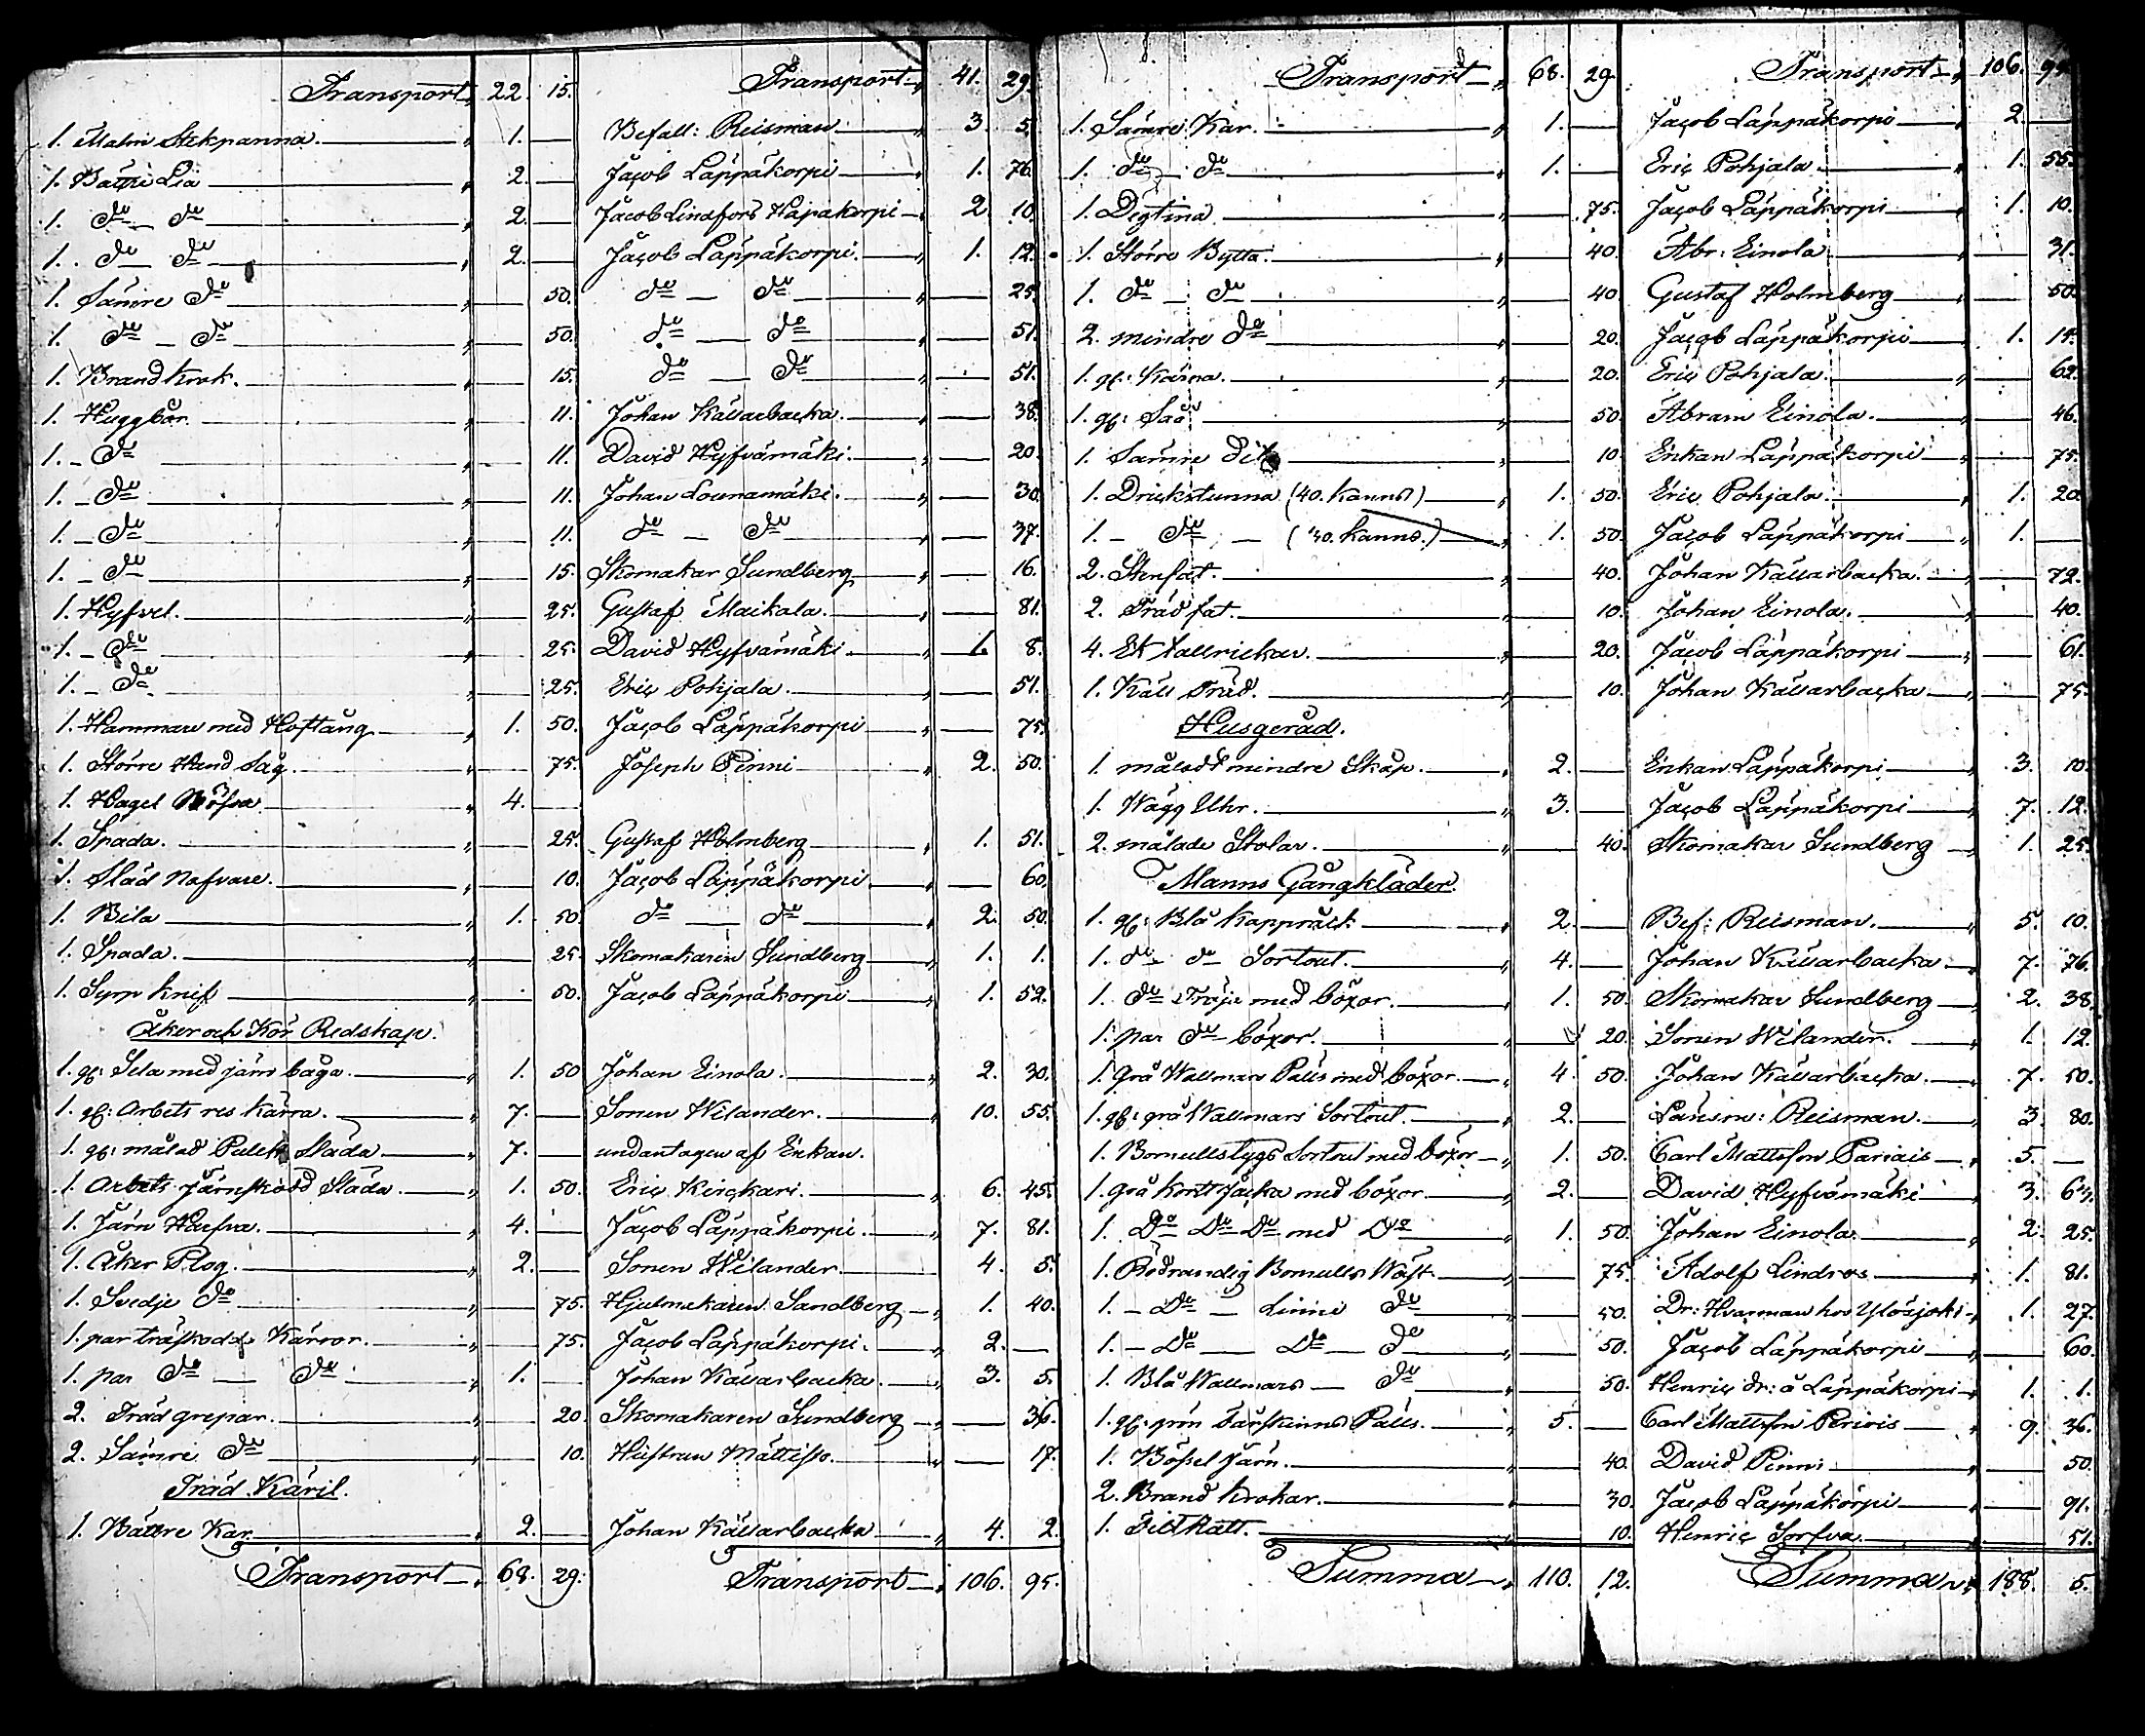 Transport 22. 15. Transport 41. 29.
1. Malm Stekpanna. 1. — Befall: Reisman 3. 5.
1. Bättre Lia 2. — Jacob Läppäkorpi 1. 76.
1. do do 2. — Jacob Lindfors Hapakorpi 2. 10.
1. do do 2. — Jacob Läppäkorpi. 1. 12.
1. Sämre do 50. do — do 25.
1. do — do 50. do — do 51.
1. Brand krok. 15. do — do 51.
1. Huggbör. 11. Johan Källarbacka. 38.
1. do 11. David Hyfvämäki. 20.
1. do 11. Johan Lounamäki. 30.
1. do 11. do — do 37.
1. do 15. Skomakar Sundberg 16.
1. Hyfvel. 25. Gustaf Maikala. 81.
1. do 25. David Hyfvämäki 1. 8.
1. do 25. Eric Pohjala. 51.
1. Hammare med Hoftång 1. 50. Jacob Läppäkorpi 75.
1. Större Hand Såg. 75. Joseph Pinni 2. 50.
1. Hagel Bössa 4. —
1. Spada. 25. Gustaf Holmberg 1. 51.
1. Släd Nafvare. 10. Jacob Läppäkorpi. 60.
1. Bila 1. 50. do — do 2. 50.
1. Spada. 25. Skomakaren Sundberg 1. 1.
1. Symp knif 50. Jacob Läppäkorpi 1. 52.
Åker och Kör Redskap.
1. gl: Sela med järn båga. 1. 50 Johan Einola. 2. 30.
1. gl: Arbets res kärra. 7. — Sonen Wilander. 10. 55.
1. gl: målad Släda 7. — undantagen af Enkan.
1. Arbets Järnskodd Släda. 1. 50. Eric Kirckari. 6. 45.
1. Järn Harfva. 4. — Jacob Läppäkorpi. 7. 81.
1. Åker Plog. 2. — Sonen Wilander 4. 5.
1. Svedje do 75. Hjulmakaren Sandberg 1. 40.
1. par träskodde Kärror. 75. Jacob Läppäkorpi. 2. —
1. par do — do 1. — Johan Källarbacka. 3. 5.
2. Träd grepar. 20. Skomakaren Sundberg 36.
2. Sämre do 10. Hustrun Mattisso. 17.
Träd Käril.
1. Bättre Kar. 2. — Johan Källarbacka 4. 2.
Transport 68. 29. Transport 106. 95.
Transport 68. 29. Transport 106. 95
1. Sämre Kar. 1. — Jacob Läppäkorpi 2. —
1. do do 1. — Eric Pohjala 1. 55.
1. Degtina 75. Jacob Läppäkorpi 1. 10.
1. Större Bytta. 40. Abr: Einola 31.
1. do — do 40. Gustaf Holmberg 50.
2. mindre do 20. Jacob Läppäkorpi 1. 15.
1. gl: Kärna. 20. Eric Pohjala. 62.
1. gl: Så 50. Abram Einola. 46.
1. Sämre dito 10. Enkan Läppäkorpi 75.
1. Drickstunna (40. kanns) 1. 50. Eric Pohjala. 1. 20.
1. — do — (30. kanns.) 1. 50. Jacob Läppäkorpi 1. —
2. Stenfat. 40. Johan Källarbacka. 72.
2. Träd fat. 10. Johan Einola. 40.
4. Ek tallrickar. 20. Jacob Läppäkorpi 61.
1. Käll Träd. 10. Johan Källarbacka 75.
Husgeråd.
1. måladt mindre Skåp. 2. — Enkan Läppäkorpi 3. 10.
1. Wägg Uhr. 3. — Jacob Läppäkorpi 7. 12.
2. målade Stolar. 40. Skomakar Sundberg 1. 25.
Manns Gångkläder.
1. gl: Blå Kapprock 2. — Bef: Reisman. 5. 10.
1. do do Sortout. 4. — Johan Källarbacka 7. 76.
1. do Tröja med böxor. 1. 50. Skomakar Sundberg 2. 38.
1. par do böxor. 20. Sonen Wilander. 1. 12.
1. Grå Wallmars Palts med böxor 4. 50. Johan Källarbacka. 7. 50.
1. gl: grå Wallmars Sortout. 2. — Länsm: Reisman. 3. 80.
1. Bomullstygs Sortout med böxor 1. 50. Carl Mattsson 5. —
1. Grå kort Jacka med böxor 2. — David Hyfvämäki 3. 63.
1. Do Do Do med Do 1. 50. Johan Einola. 2. 25.
1. Rödrandig Bomulls Wäst. 75. Adolf Lindros 1. 81.
1. — Do — Linne do 50. Dr: hos Ylösjoki 1. 27.
1. — Do — Do — do 50. Jacob Läppäkorpi 60.
1. Blå Wallmars — do 50. Henric dr: å Läppäkorpi 1. 1.
1. gl: Fårskinns Palts. 5. — Carl Mattsson 9. 36.
1. Bössel Järn. 40. David Pinni 50.
2. Brand Krokar. 30. Jacob Läppäkorpi 91.
1. Filt Hatt. 10. Henric Torfva 51.
Summa 110. 12. Summa 188. 5.